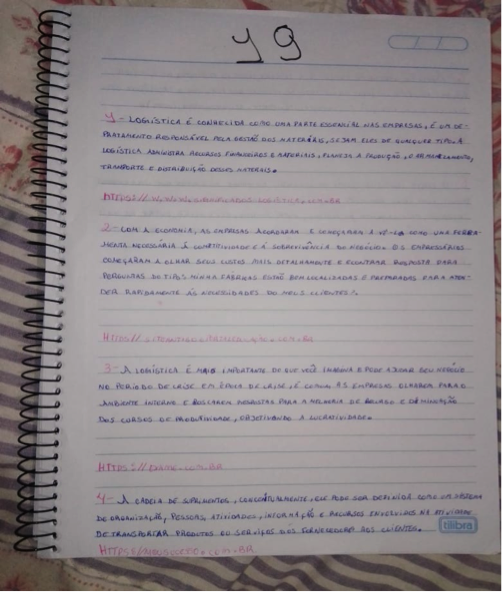 19
1 - LOGÍSTICA É CONHECIDA COMO UMA PARTE ESSENCIAL NAS EMPRESAS, É UM DE-
PARTAMENTO RESPONSÁVEL PELA GESTÃO DOS MATERIAIS, SEJAM ELES DE QUALQUER TIPO. A
LOGÍSTICA ADMINISTRA RECURSOS FINANCEIROS E MATERIAIS, PLANEJA A PRODUÇÃO, O ARMAZENAMENTO,
TRANSPORTE E DISTRIBUIÇÃO DESSES MATERIAIS.
HTTPS://WWW. LOGISTICA.COM.BR
2 - COM A ECONOMIA, AS EMPRESAS ACORDARAM E COMEÇARAM A COMO UMA FERRA-
MENTA NECESSÁRIA À COMPETITIVIDADE E À SOBREVIVÊNCIA DO NEGÓCIO. OS EMPRESÁRIOS
COMEÇARAM A OLHAR SEUS CUSTOS MAIS DETALHAMENTE E RESPOSTA PARA
PERGUNTAS DO TIPO: MINHA FABRICAS ESTÃO BEM LOCALIZADAS E PREPARADAS PARA ATEN-
DER RAPIDAMENTE ÀS NECESSIDADES DO MEUS CLIENTES?
3 - A LOGÍSTICA É MAIS IMPORTANTE DO QUE VOCÊ IMAGINA E PODE AJUDAR SEU NEGÓCIO
NO PERÍODO DE CRISE. EM ÉPOCA DE CRISE, É COMUM AS EMPRESAS OLHAREM PARA O
AMBIENTE INTERNO E BUSCAREM RESPOSTAS PARA A MELHORIA DE
DOS DE PRODUTIVIDADE, OBJETIVANDO A LUCRATIVIDADE.
HTTPS://EXAME.COM.BR
4 - A CADEIA DE SUPRIMENTOS, CONCEITUALMENTE, ELE PODE SER DEFINIDA COMO UM SISTEMA
DE ORGANIZAÇÃO, PESSOAS, ATIVIDADES, INFORMAÇÃO E RECURSOS ENVOLVIDOS NA ATIVIDADE
DE TRANSPORTAR PRODUTOS OU SERVIÇOS DOS FORNECEDORES AOS CLIENTES.
tilibra